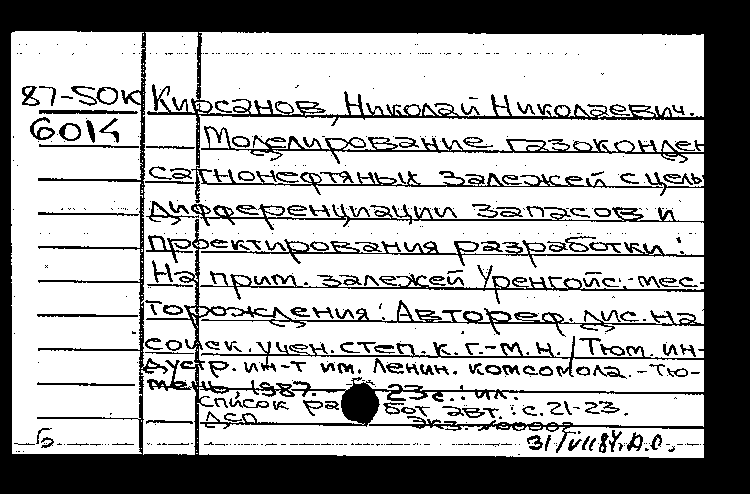 87-50К Кирсанов, Николай Николаевич.
601К Моделирование газоконден
сатнонефтяных залежей с цель
дифференциации запасов и
проектирования разработки:
На прим. залежей Уренгойс. мес-
торождения: Автореф. дис. на
соиск. учен. степ. к. г.-м. н. / Тюм. ин-
дустр. ин-т им. Ленин. комсомола. - Тю-
мень 1987. - 23 с.: ил.
Список работ авт.: с. 21-23.
ДСП Экз.
Б